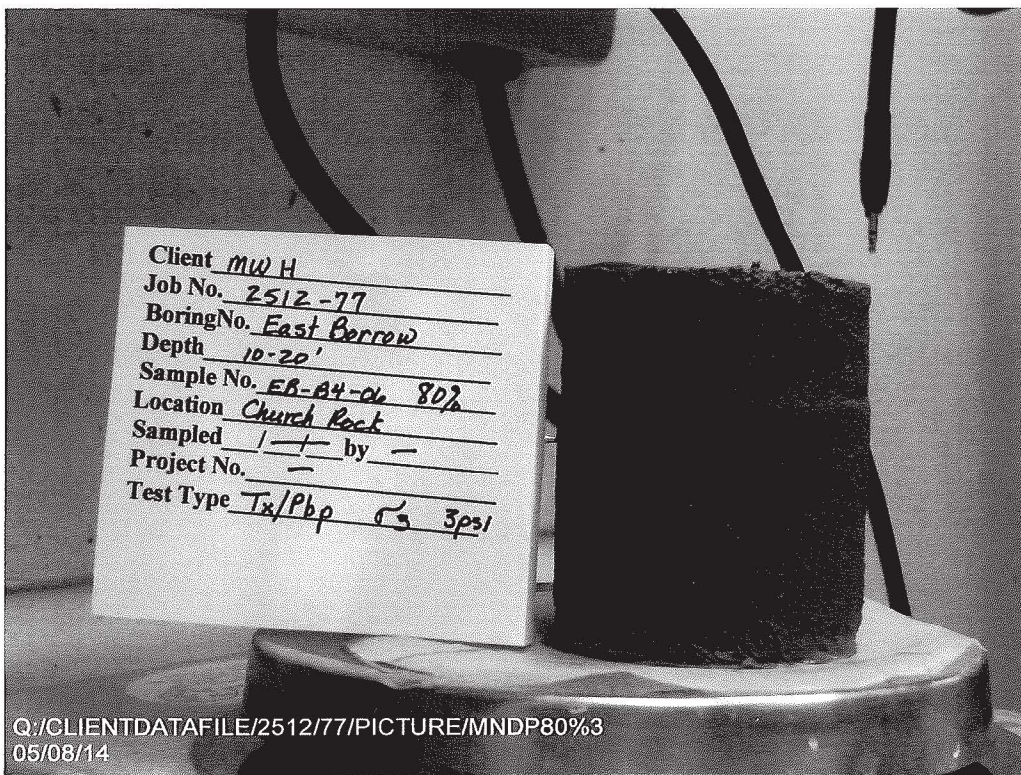 Client MWH
Job No. 2512-77
BoringNo. East Borrow
Depth 10-20'
Sample No. EB-B4-06 80%
Location Church Rock
Sampled / — / by —
Project No. —
Test Type Tx/Pbp σ3 3psi
Q:/CLIENTDATAFILE/2512/77/PICTURE/MNDP80%3
05/08/14